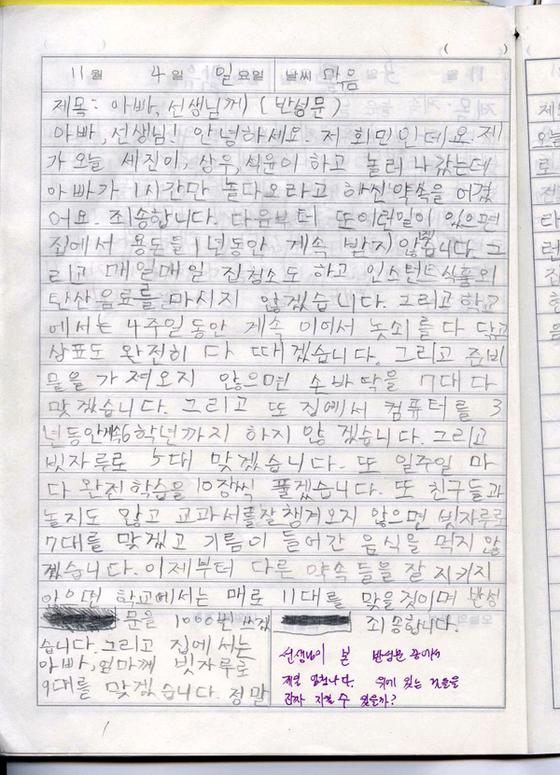 11월 4일 일요일 날씨 맑음
제목: 아빠, 선생님께 (반성문)
아빠, 선생님! 안녕하세요. 저 희민인데요. 제
가 오늘 세진이, 상우, 석윤이 하고 놀러 나갔는데
아빠가 1시간만 놀다오라고 하신 약속을 어겼
어요. 죄송합니다. 다음부터 또 이런일이 있으면
집에서 용돈을 1년동안 계속 받지 않겠습니다. 그
리고 매일매일 집청소도 하고 인스턴트식품외
탄산음료를 마시지 않겠습니다. 그리고 학교
에서는 4주일 동안 계속 이어서 놋쇠를 다 닦고
상표도 완전히 다 떼겠습니다. 그리고 준비
물을 가져오지 않으면 손바닥을 7대 다
맞겠습니다. 그리고 또 집에서 컴퓨터를 3
년동안계속6학년까지 하지 않겠습니다. 그리고
빗자루로 5대 맞겠습니다. 또 일주일 마
다 완전학습을 10장씩 풀겠습니다. 또 친구들과
놀지도 않고 교과서를잘챙겨오지 않으면 빗자루로
7대를 맞겠고 기름이 들어간 음식을 먹지 않
겠습니다. 이제부터 다른 약속들을 잘 지키지
않으면 학교에서는 매로 11대를 맞을것이며 반성
문을 1000번 쓰겠
습니다. 그리고 집에서는
아빠, 엄마께 빗자루로
9대를 맞겠습니다. 정말
죄송합니다.
선생님이 본 반성문 중에서
제일 입니다. 위에 있는 것들을
과자 지킬 수 있을까?